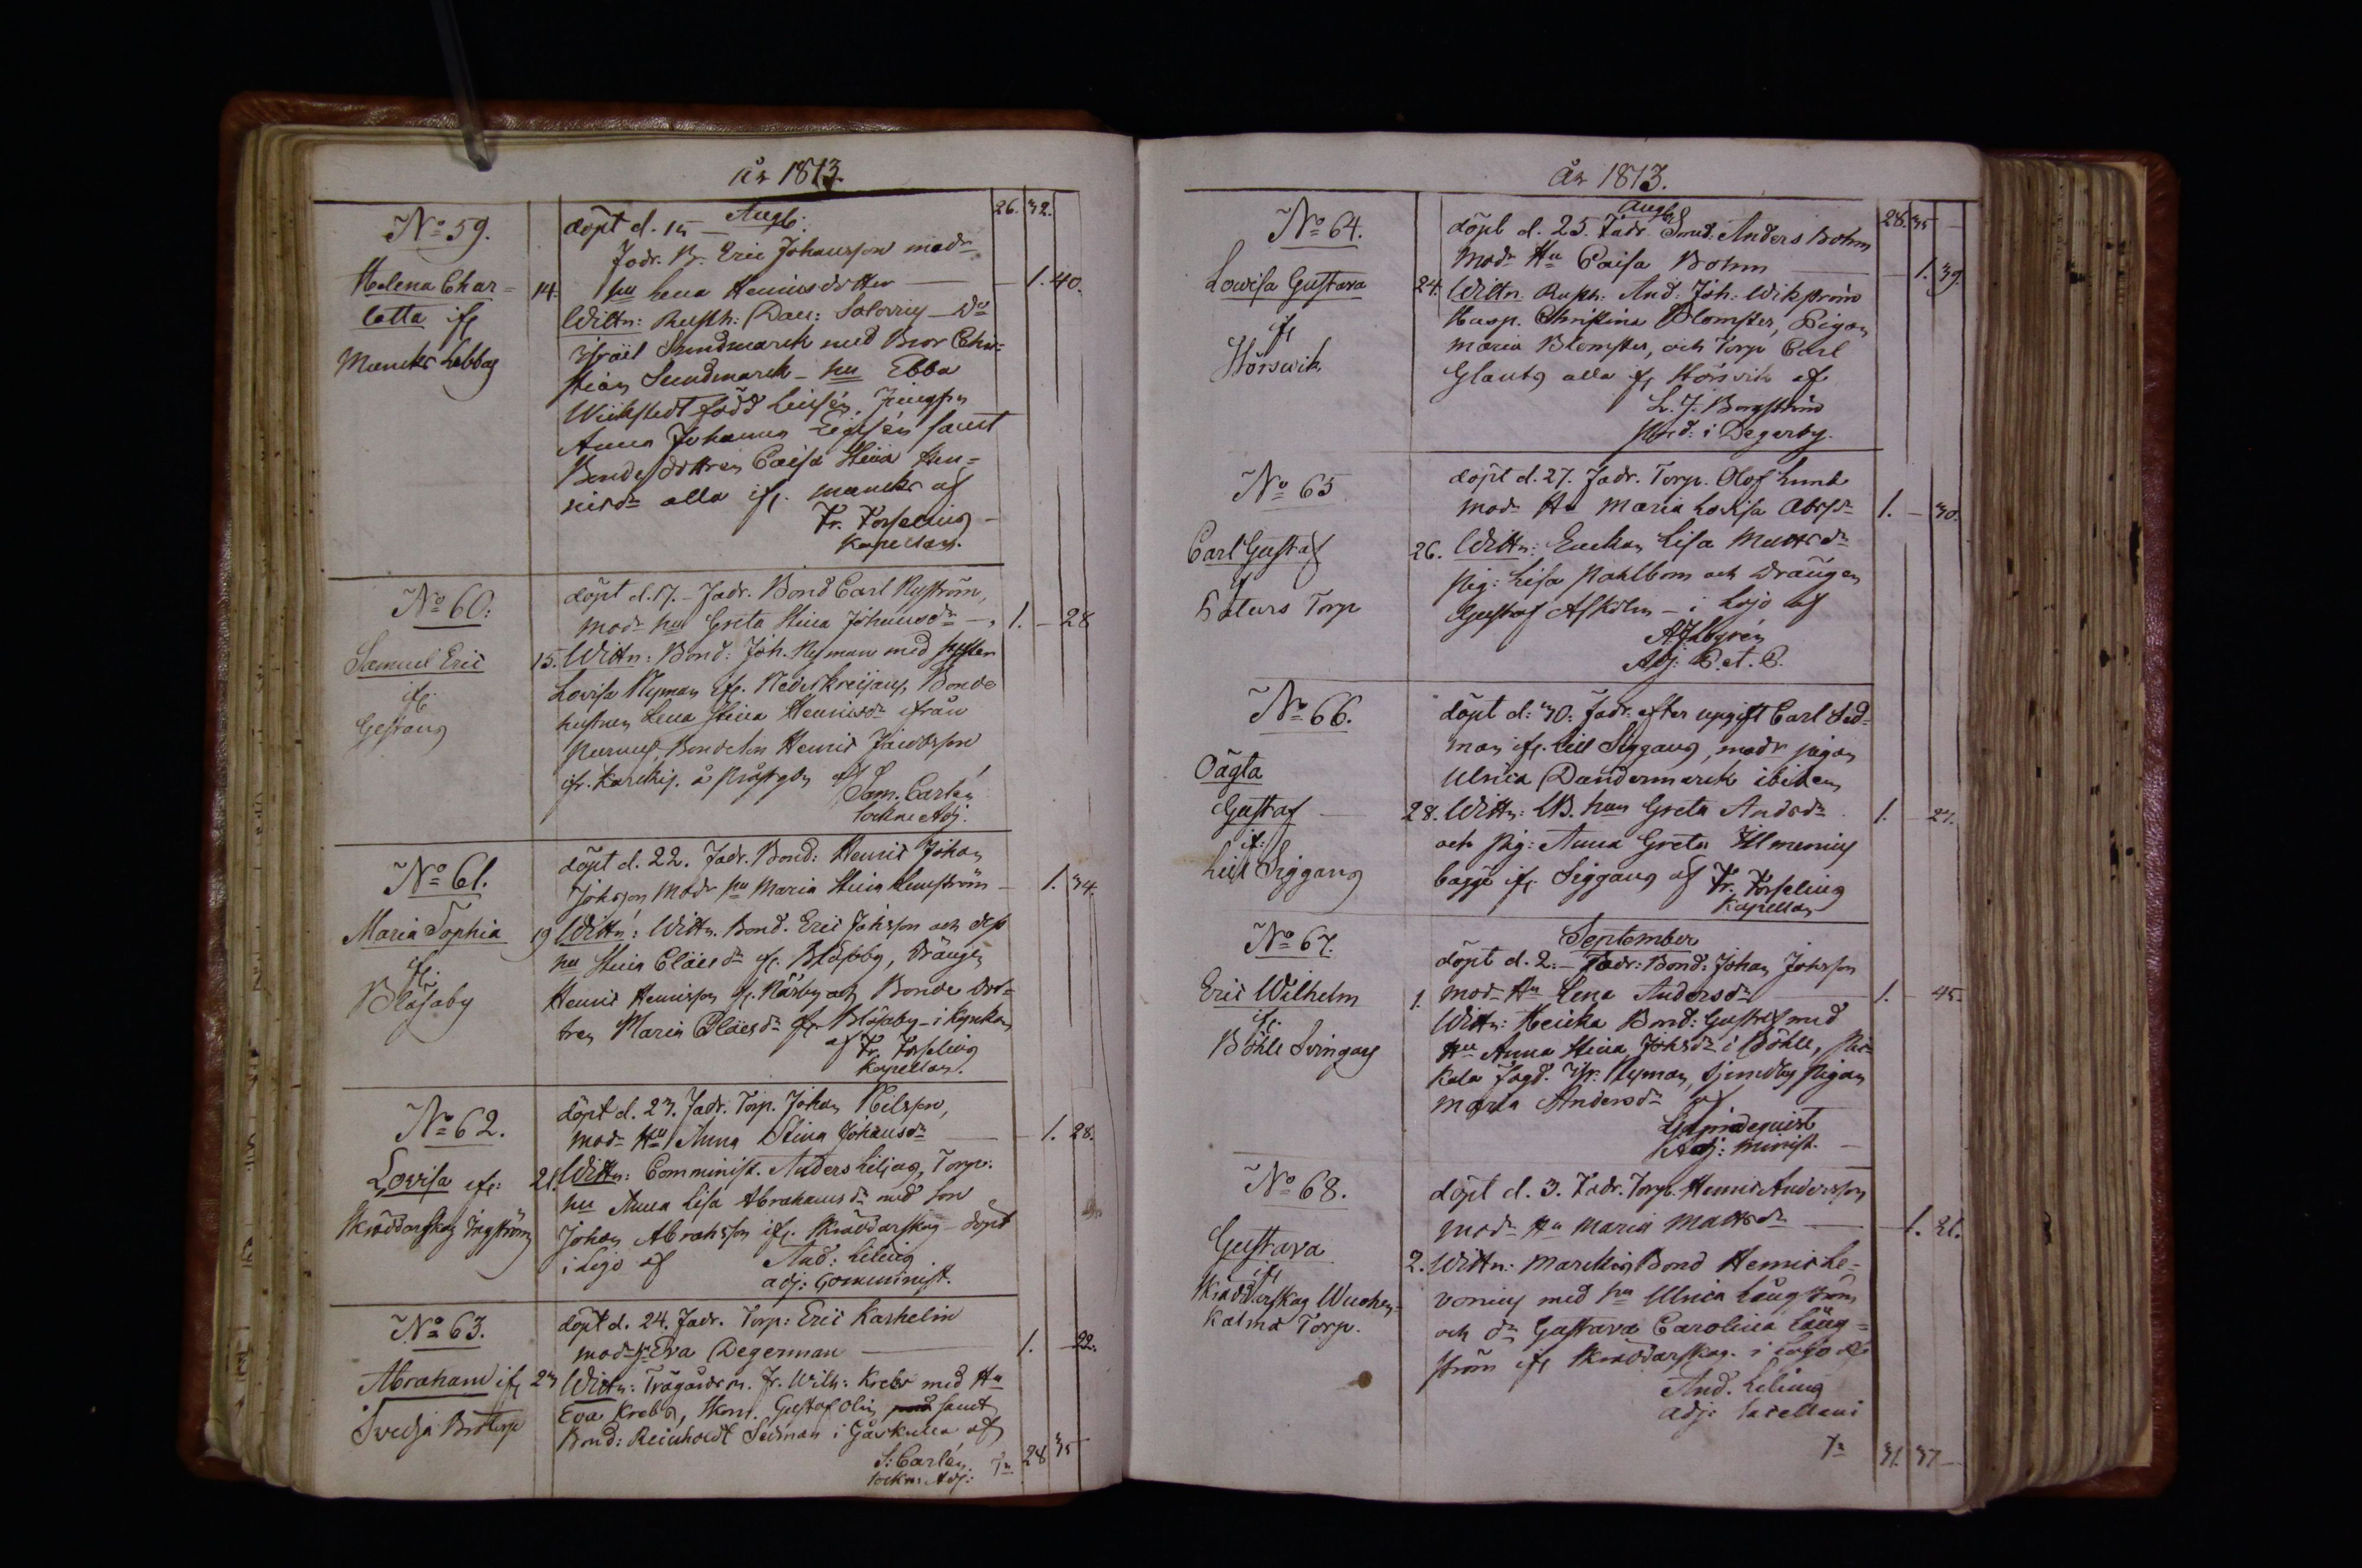 År 1813.
No 59.
Helena Char=
lotta if
Muncks Labbas
14.
döpt d. 15 Augti:
26. 32.
Fadr. B. Eric Johansson modr
hu Lena Henricsdotter — 1. 40.
Wittn: Rusth: Dan:
Israël Sundmarck med Bror Chri=
stian Sundmarck - hu Ebba
Wickstedt född Jungfru
Anna Johanna samt
Bondedottren Caisa Stina Hen=
ricsdr alla if. Muncks af
Fr. Forselius
Kapellan.
No 60:
Samuel Eric
if.
15.
döpt d. 17. Fadr. Bond Carl Nyström,
modr hu Greta Stina Johansdr — 1. — 28
Wittn: Bond: Joh. Nyman med Syster
Lovisa Nyman if. Bonde
hustrun Lena Stina Henricsdr ifrån
Bondeson Henric Jacobsson
Sam. Carlén
Sockne Adj.
No 61.
Maria Sophia
if.
Blåsaby
19
döpt d. 22. Fadr. Bond: Henric Johan
Johsson modr hu Maria Stina — 1. 34.
Wittn: Wittn. Bond. Eric Johsson och dess
hu Stina Cläesdr if. Blåsaby, Drängen
Henric Henricsson if. Näsby och Bonde dot=
tren Maria Cläesdr if. Blåsaby - i Kyrkan
af Fr. Forselius
Kapellan.
No 62.
Lovisa if:
Skräddarskog
21.
döpt d. 23. Fadr. Torp. Johan Nilsson,
modr Hu Anna Stina Johansdr — 1. 28.
Wittn: Comminist. Anders Lilius, Torp:
hu Anna Lisa Abrahamsdr med son
Johan Abrahsson if. Skräddarskog - döpt
i Lojo af And: Lilius
adj: Comminist.
No 63.
Abraham if
23
döpt d. 24. Fadr. Torp: Eric Karhelin
modr hu Eva Degerman — 1. — 22.
Wittn: Trägårdsm. Fr. Wilh: Krebs med Hu
Eva Krebs, Skom. Gustaf Olin samt
Bond: Reinholdt Sedman i Gårskulla af
S: Carlén
Sockn: Adj:
Tr. 28 35
År 1813.
No 64.
Lowisa Gustava
if
Störsvik
24.
Augti
döpt d. 25. Fadr. Smed: Anders Bohm
28. 35 —
modr Hu Caisa Bohm — 1. 39.
Wittn: Rusth: And: Joh: Wikström
Husp. Christina Blomster, Pigan
Maria Blomster, och Torp Carl
alla if Störsvik af
L. J. Bergström
Pred: i Degerby.
No 65
Carl Gustaf
if
Torp
26.
döpt d. 27. Fadr. Torp. Olof Lund
modr Hu Maria Lovisa Abrsdr 1. — 30.
Wittn: Enckan Lisa Mattsdr
Pig: Lisa Pahlbom och Drängen
Gustaf Asholm - i Lojo af
Adj: P. et. P.
No 66.
Oägta
Gustaf
if:
Lill Siggans
28.
döpt d: 30: Fadr: efter upgift Carl Sed=
man if. Lill Siggans, modr pigan
Ulrica Dandermarck ibidem
Wittn: UB. hun Greta Andrsdr 1. — 27.
och Pig: Anna Greta Ilmenius
bägge if. Siggans af Fr. Forselius
Kapellan
No 67.
Eric Wilhelm
if.
Böhle Svingas
1.
September
döpt d. 2. Fadr: Bond: Johan Johsson
modr Hu Lena Andersdr — 1. — 45.
Wittn: Bond: Gustaf med
Hu Anna Stina Johsdr i Böhle,
Nyman, Sjundby Pigan
Maria Andersdr af
Adj: Minist.
No 68.
Gustava
if
Skräddarskog
Torp.
2.
döpt d. 3. Fadr. Torp. Henric Andersson
modr Hu Maria Mattsdr — 1. 21.
Wittn: Bond Henric Le=
vonius med hu Ulrica Långström
och dr Gustava Carolina Lång=
ström if Skräddarskog i Lojo af
And. Lilius
Adj: Sacellani
Tr 31 37 —